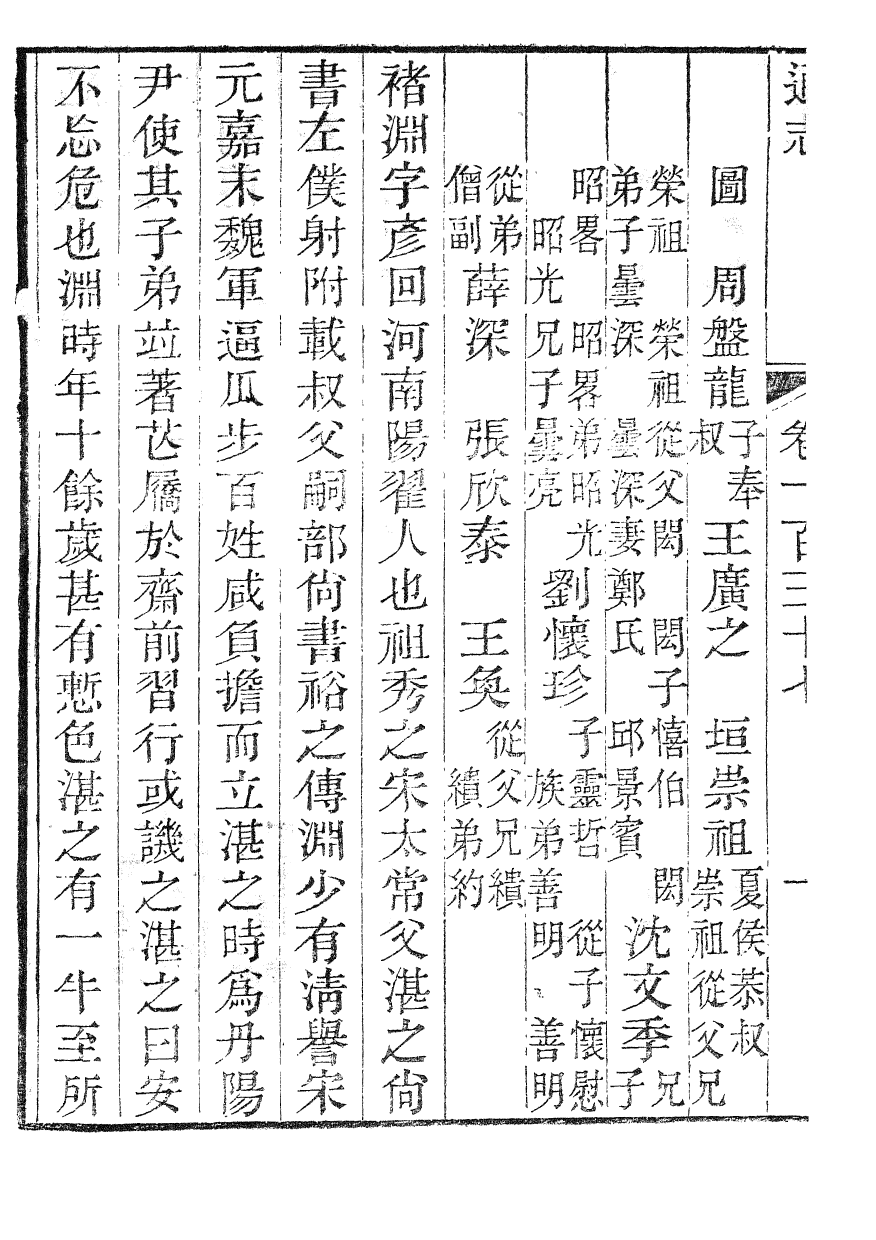 通志 卷一百三十七 一
圖 周盤龍 子奉叔 王廣之 垣崇祖 夏侯恭叔 崇祖從父兄
榮祖 榮祖從父閎 閎子憘伯 閎弟子曇深 曇深妻鄭氏 邱景賓 沈文季 兄子
昭畧 昭畧弟昭光 昭光兄子曇亮 劉懷珍 子靈哲 從子懷慰 族弟善明 善明
從弟僧副 薛深 張欣泰 王奐 從父兄繢 繢弟約
褚淵字彥回河南陽翟人也祖秀之宋太常父湛之尙
書左僕射附載叔父嗣部尙書裕之傳淵少有淸譽宋
元嘉末魏軍逼瓜步百姓咸負擔而立湛之時爲丹陽
尹使其子弟竝著芒屩於齋前習行或譏之湛之曰安
不忘危也淵時年十餘歲甚有慙色湛之有一牛至所